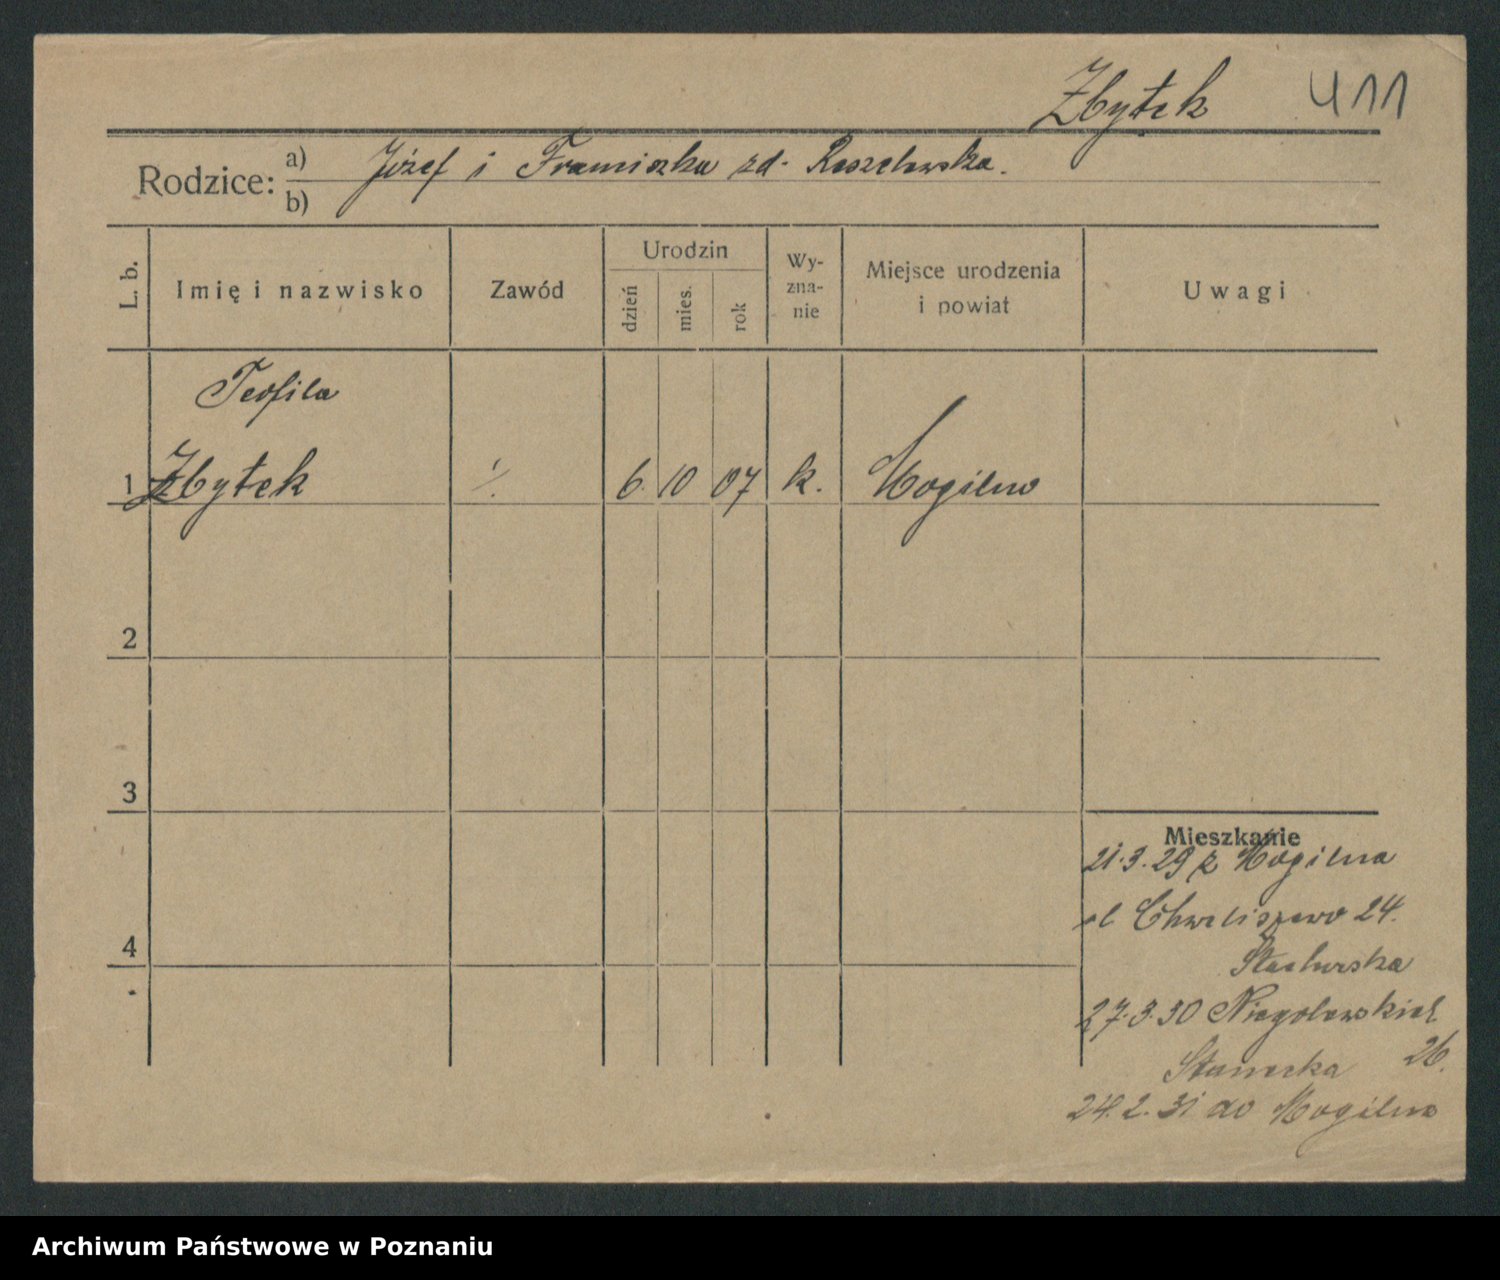 Zbytek 411
Rodzice: a) Józef i Franciszka zd. Roszelewska.
b)
L. b. Imię i nazwisko Zawód Urodzin dzień mies. rok Wyznanie Miejsce urodzenia i powiat Uwagi
Teofila
1 Zbytek ./. 6. 10 07 k. Mogilno
2
3
Mieszkanie
21.3.29 z Mogilna
ul Chwaliszewo 24.
4
Stachurska
27.3.30 Niegolewskich
26.
24.2.31 do Mogilna
Archiwum Państwowe w Poznaniu